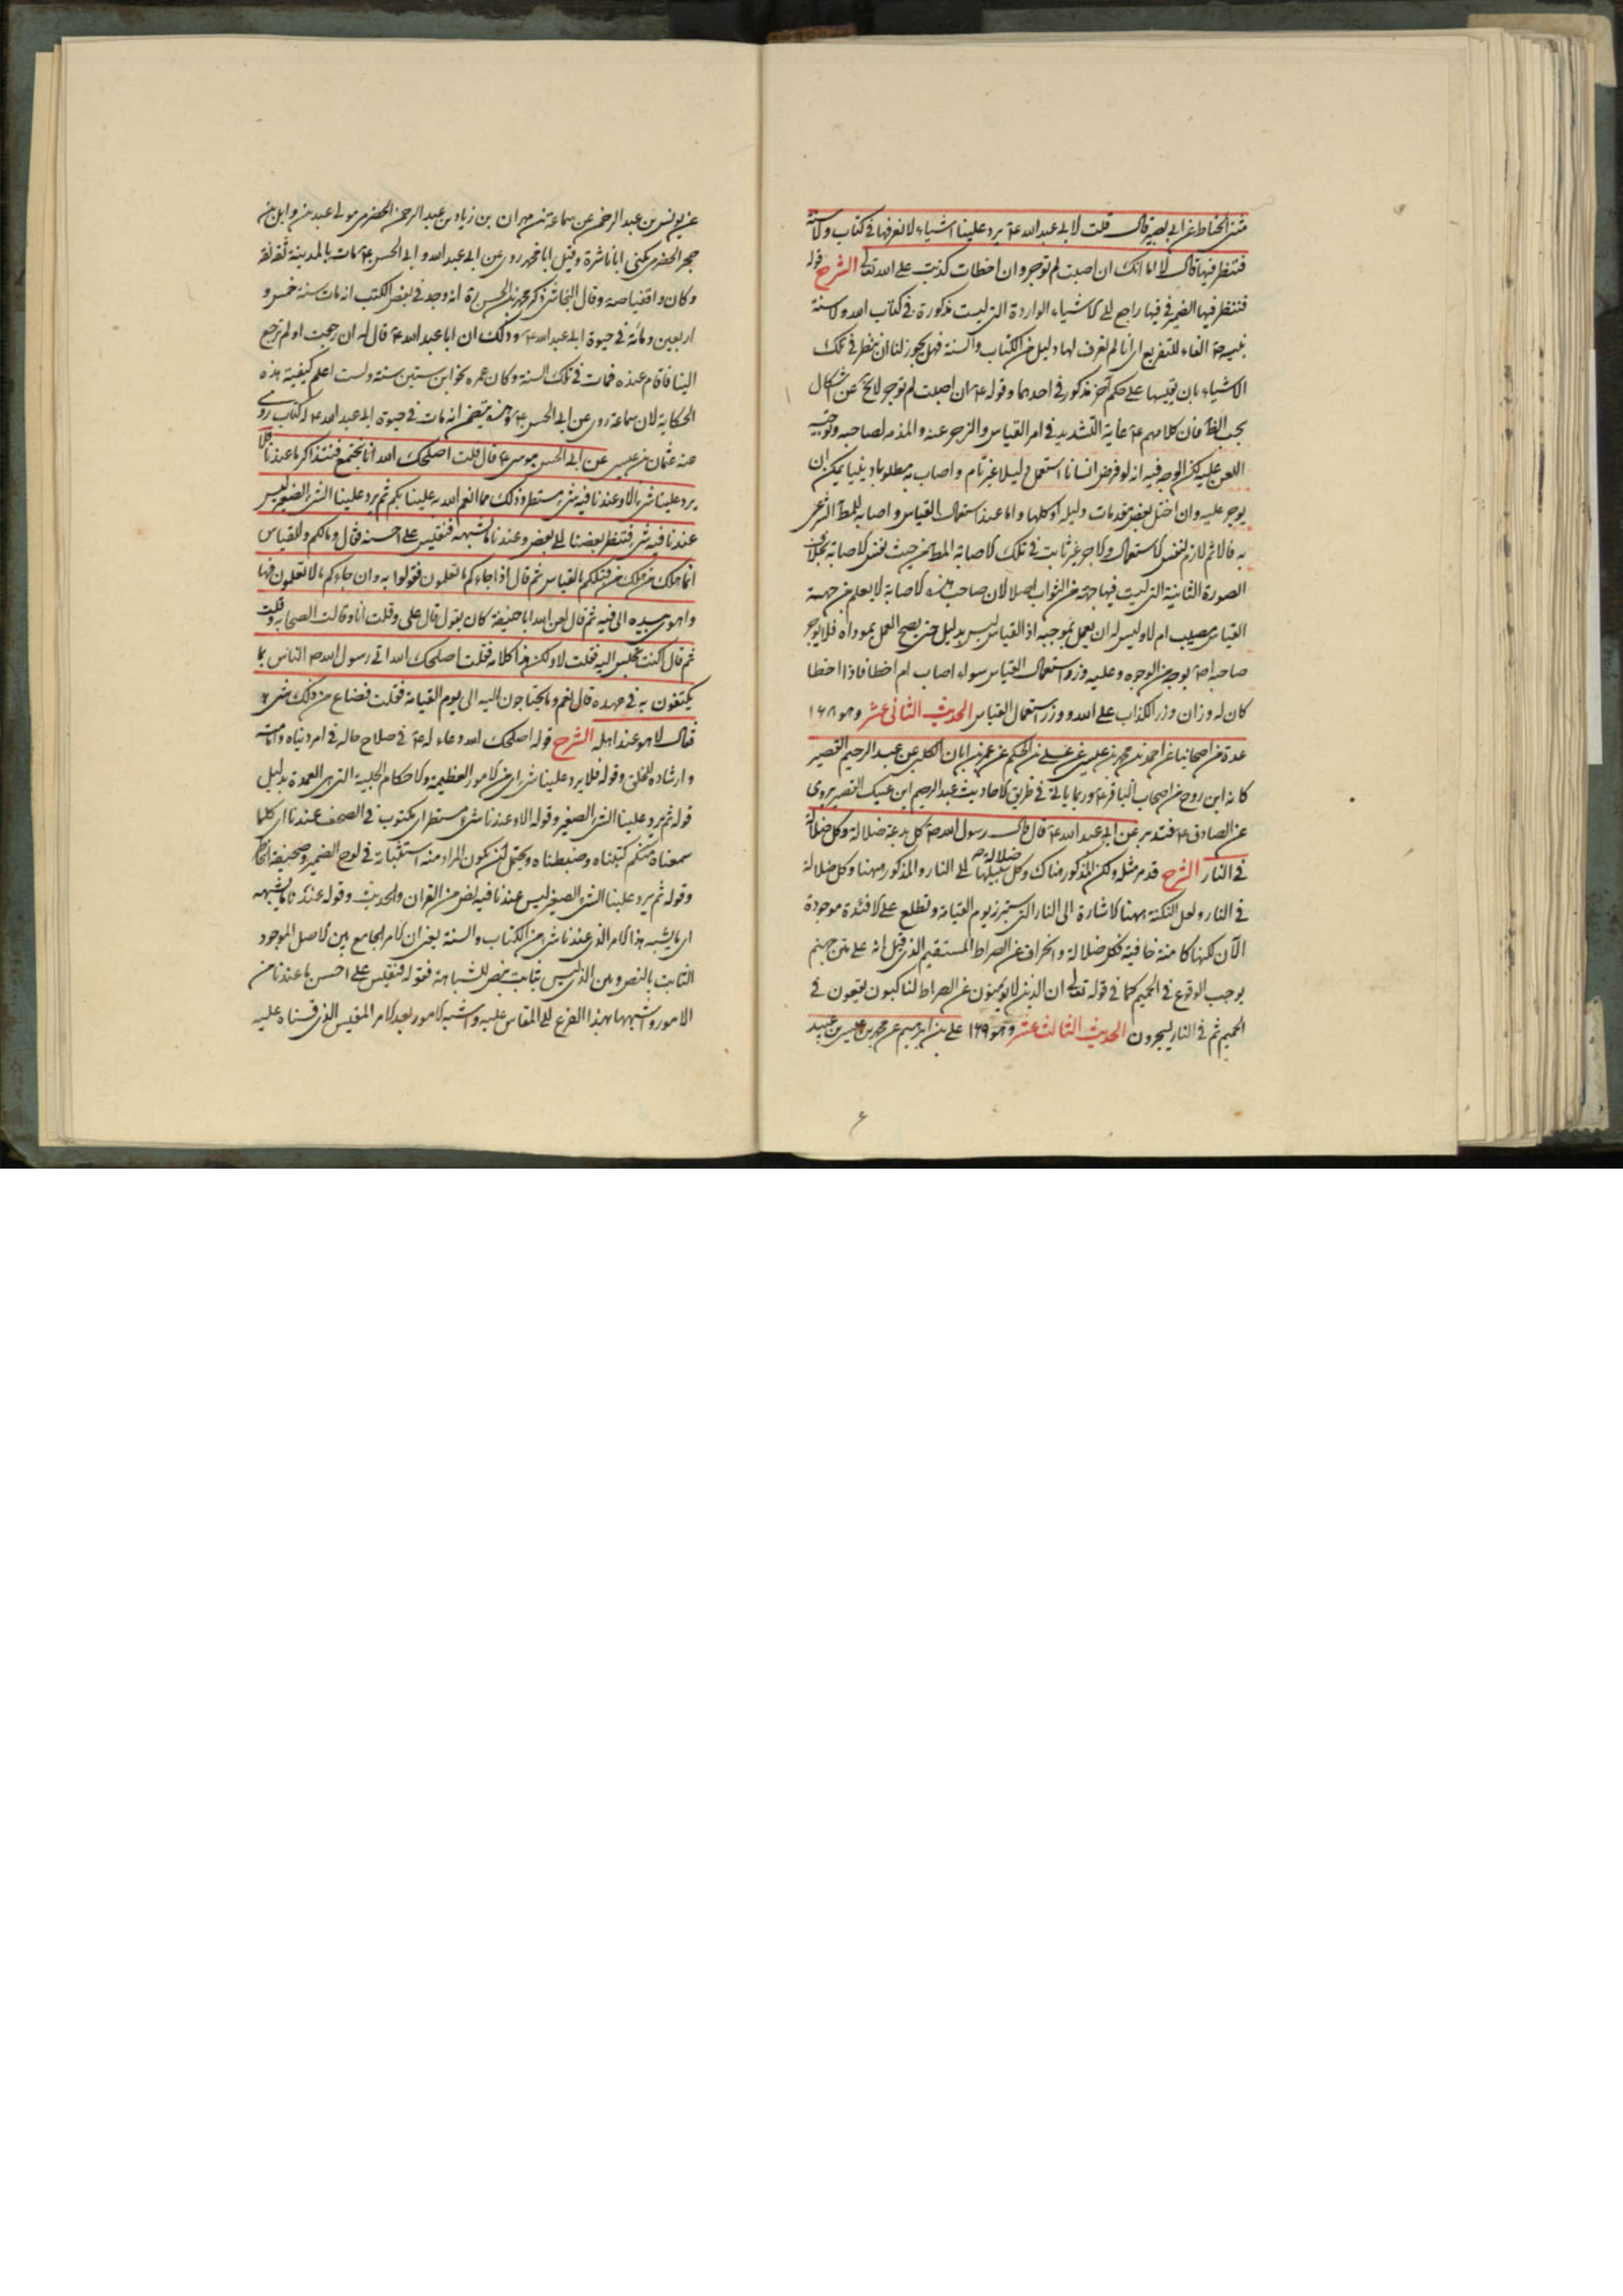 مثنى الحناط عن ابى بصير قال قلت لابى عبد الله ع يرد علينا اشياء لا نعرفها فى كتاب ولا سنة
فننظر فيها قال لا اما انك ان اصبت لم توجر وان اخطات كذبت على الله تعالى الشرح قوله
فننظر فيها الضمير فى فيها راجع الى الاشياء الواردة التى ليست مذكورة فى كتاب الله ولا سنة
نبيه ص الفاء للتفريع اى انا لم نعرف لها دليل من الكتاب والسنة فهل يجوز لنا ان ننظر فى تلك
الاشياء بان نقيسها على حكم آخر مذكور فى احدهما وقوله ع ان اصبت لم توجر لا يخ عن اشكال
بحسب الظ فان كلامهم ع غاية التشديد فى امر القياس والزجر عنه والمذمة لصاحبه وتوجيه
اللعن عليه لكن الوجه فيه انه لو فرض انسانا استعمل دليلا غير تام و اصاب به مطلوبا دينيا يمكن ان
يوجر عليه وان اختل بعض مقدمات دليله او كلها واما عند استعمال القياس و اصابه للمط الشرعى
به فالاثم لازم لنفس الاستعمال والاجر غير ثابت فى تلك الاصابة المط من حيث نفس الاصابة بخلاف
الصورة الثانية التى ليست فيها جهة من الثواب اصلا لان صاحب هذه الاصابة لا يعلم من جهة
القياس مصيب ام لا وليس له ان يعمل بموجبه اذ القياس ليس بدليل حتى يصح العمل بموداه فلا يوجر
صاحبه اص بوجه من الوجوه وعليه وزر استعمال القياس سواء اصاب ام اخطا فاذا اخطا
كان له وزران وزر الكذاب على الله و وزر استعمال القياس الحديث الثانى عشر وهو ١٦٨
عدة من اصحابنا عن احمد بن محمد بن عيسى عن على بن الحكم عن عمر بن ابان الكلبى عن عبد الرحيم القصير
كانه ابن روح من اصحاب الباقر ع وربما ياتى فى طريق الاحاديث عبد الرحيم ابن عتيك القصير يروى
عن الصادق ع فتدبر عن ابى عبد الله ع قال قال رسول الله ص كل بدعة ضلالة وكل ضلالة
فى النار الشرح قد مر مثله ولكن المذكور هناك وكل ضلالة سبيلها الى النار والمذكور ههنا وكل ضلالة
فى النار ولعل النكتة ههنا الاشارة الى النار التى ستبرز يوم القيامة وتطلع على الافئدة موجودة
الآن لكنها كامنة خافية فكل ضلالة و انحراف عن الصراط المستقيم الذى قيل انه على متن جهنم
يوجب الوقوع فى الجحيم كما فى قوله تعالى ان الذين لا يومنون عن الصراط لناكبون يقعون فى
الجحيم ثم فى النار يسجرون الحديث الثالث عشر وهو ١٦٩ على بن ابرهيم عن محمد بن عيسى بن عبيد
عن يونس بن عبد الرحمن عن سماعة بن مهران بن زياد بن عبد الرحمن الحضرمى مولى عبد بن وابل بن
حجر الحضرمى يكنى ابا ناشرة وقيل ابا محمد روى عن ابى عبد الله و ابى الحسن ع مات بالمدينة ثقة ثقة
وكان واقفيا صه وقال النجاشى ذكره محمد بن الحسن ره انه وجد فى بعض الكتب انه مات سنة خمس و
اربعين ومائة فى حيوة ابى عبد الله ع وذلك ان ابا عبد الله ع قال له ان رجعت او لم ترجع
الينا فاقام عنده فمات فى تلك السنة وكان عمره نحوا من ستين سنة ولست اعلم كيفية هذه
الحكاية لان سماعة روى عن ابى الحسن ع وهذه يتضمن انه مات فى حيوة ابى عبد الله ع له كتاب روى
عنه عثمان بن عيسى عن ابى الحسن موسى ع قال قلت اصلحك الله انا نجتمع فنتذاكر ما عندنا فلا
يرد علينا شىء الا وعندنا فيه شىء مستطر وذلك مما انعم الله به علينا بكم ثم يرد علينا الشىء الصغير ليس
عندنا فيه شىء فننظر بعضنا الى بعض وعندنا ما يشبهه فنقيس على احسنه فقال ومالكم وللقياس
انما هلك من هلك من قبلكم بالقياس ثم قال اذا جاءكم ما تعلمون فقولوا به وان جاءكم ما لا تعلمون فها
واهوى بيده الى فيه ثم قال لعن الله ابا حنيفة كان يقول قال على وقلت انا وقالت الصحابه وقلت
ثم قال اكنت تجلس اليه فقلت لا ولكن هذا كلامه فقلت اصلحك الله اتى رسول الله ص الناس بما
يكتفون به فى عهده قال نعم وما يحتاجون اليه الى يوم القيامة فقلت فضاع من ذلك شىء
فقال لا هو عند اهله الشرح قوله اصلحك الله دعاء له ع فى صلاح حاله فى امر دنياه و امامته
و ارشاده للخلق وقوله فلا يرد علينا شىء اى من الامور العظيمة والاحكام الجلية التى هى العمدة بدليل
قوله ثم يرد علينا الشىء الصغير وقوله الا وعندنا شىء مستطر اى مكتوب فى الصحف عندنا اى كلما
سمعناه منكم كتبناه وضبطناه ويحتمل ان يكون المراد منه استثباته فى لوح الضمير وصحيفة الخاطر
وقوله ثم يرد علينا الشىء الصغير ليس عندنا فيه نص من القران والحديث وقوله عندنا ما يشبهه
اى ما يشبه هذا الامر الذى عندنا شىء من الكتاب والسنة يعنى ان الامر الجامع بين الاصل الموجود
الثابت بالنص وبين الذى ليس بثابت بنص للشباهة فقوله فنقيس على احسن ما عندنا من
الامور و اشبهها بهذا الفرع الى المقاس عليه و اشبه الامور بعد الامر المقيس الذى قسناه عليه